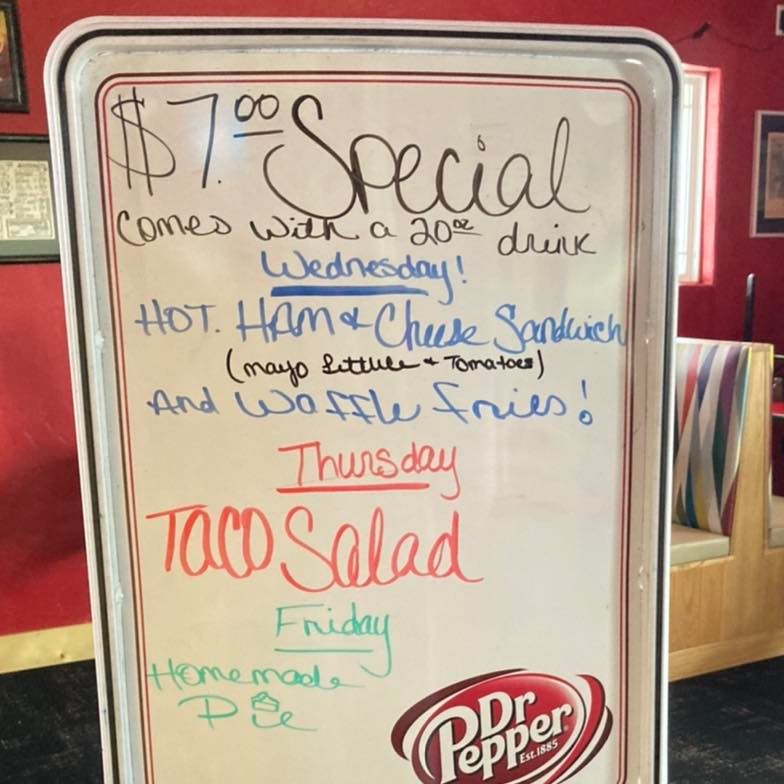 $7.00 Special
Comes with a 20oz drink
Wednesday!
HOT. HAM & Cheese Sandwich
(mayo Lettuce + Tomatoes)
And Waffle Fries!
Thursday
TACO Salad
Friday
Homemade
Pie
Dr
Pepper
Est.1885